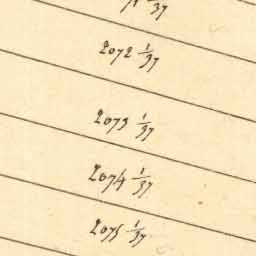 1/37
2072 1/37
2073 1/37
2074 1/37
2075 1/37